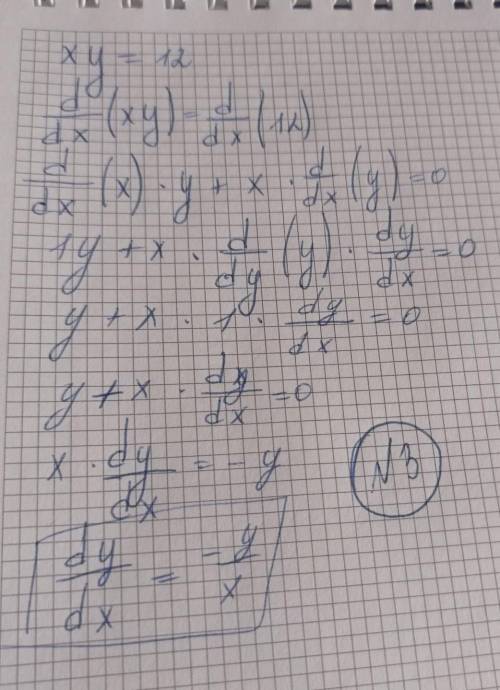 xy = 12
d/dx (xy) = d/dx (12)
d/dx (x) · y + x · d/dx (y) = 0
1y + x · d/dy (y) · dy/dx = 0
y + x · 1 · dy/dx = 0
y + x · dy/dx = 0
x · dy/dx = -y
N3
dy/dx = -y/x